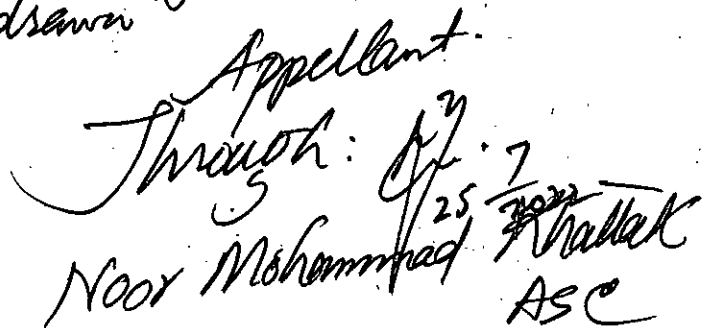 Appellant.
Through:
25/7/2022
Noor Mohammad Khattak
ASC